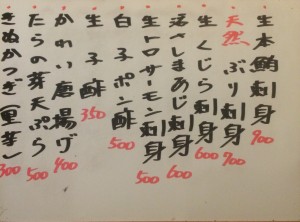 生本鮪刺身 900
天然ぶり刺身 700
生くじら刺身 600
活〆さしまあじ刺身 600
生トロサーモン刺身 500
白子ポン酢 500
生子酢 350
かれい唐揚げ 400
たらの芽天ぷら 500
きぬかつぎ(里芋) 300